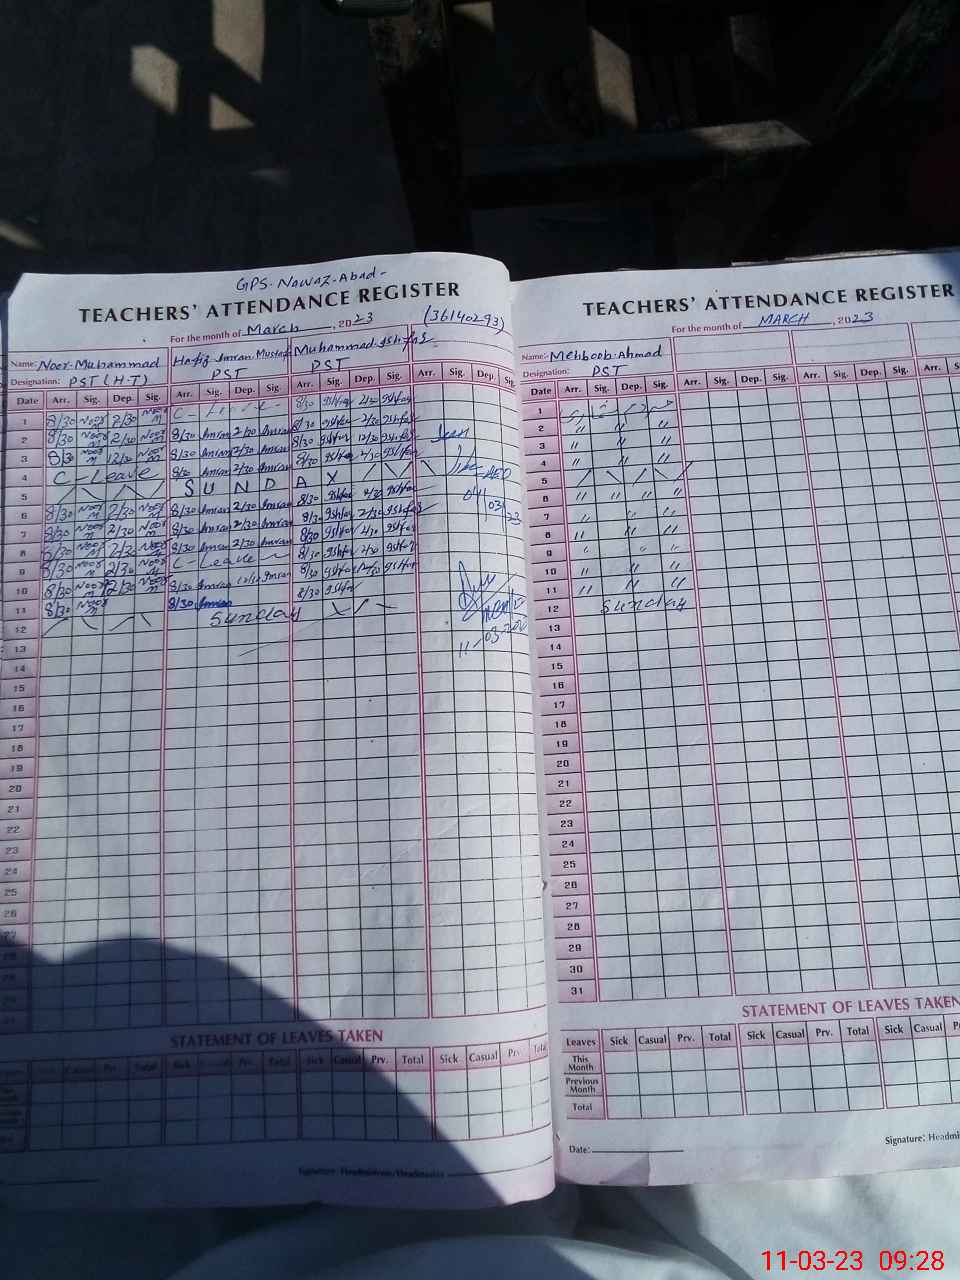 GPS. Nawaz-Abad-
TEACHERS' ATTENDANCE REGISTER
(36140293)
For the month of March, 2023
Name: Noor Muhammad Hafiz Imran Mustafa Muhammad Ishfaq
Designation: PST (H-T) PST PST
Date Arr. Sig. Dep. Sig. Arr. Sig. Dep. Sig. Arr. Sig. Dep. Sig. Arr. Sig. Dep. Sig.
1 8/30 Noor M 2/30 Noor M C-Leave- 8/30 Ishfaq 2/30 Ishfaq
2 8/30 Noor M 2/30 Noor M 8/30 Imran 2/30 Imran 8/30 Ishfaq 2/30 Ishfaq
3 8/30 Noor M 12/30 Noor M 8/30 Imran 2/30 Imran 8/30 Ishfaq 12/30 Ishfaq Seen
4 C-Leave 8/30 Imran 2/30 Imran 8/30 Ishfaq 2/30 Ishfaq
5 SUNDAY AEO
6 8/30 Noor M 2/30 Noor M 8/30 Imran 2/30 Imran 8/30 Ishfaq 2/30 Ishfaq 04/03/23
7 8/30 Noor M 2/30 Noor M 8/30 Imran 2/30 Imran 8/30 Ishfaq 2/30 Ishfaq
8 8/30 Noor M 2/30 Noor M 8/30 Imran 2/30 Imran 8/30 Ishfaq 2/30 Ishfaq
9 8/30 Noor M 2/30 Noor M C-Leave 8/30 Ishfaq 2/30 Ishfaq
10 8/30 Noor M 12/30 Noor M 8/30 Imran 12/30 Imran 8/30 Ishfaq 12/30 Ishfaq
11 8/30 Noor M 8/30 Imran 8/30 Ishfaq
12 Sunday
11-03-202
13
14
15
16
17
18
19
20
21
22
23
24
25
26
27
28
29
31
STATEMENT OF LEAVES TAKEN
Casual Prv. Total Sick Casual Prv. Total Sick Casual Prv. Total Sick Casual Prv. Total
Signature: Headmistress/Headmaster
TEACHERS' ATTENDANCE REGISTER
For the month of MARCH, 2023
Name: Mehboob Ahmad
Designation: PST
Date Arr. Sig. Dep. Sig. Arr. Sig. Dep. Sig. Arr. Sig. Dep. Sig. Arr. S
1
2 " " " "
3 " " " "
4 " " " "
5
6 " " " "
7 " " " "
8 " " " "
9 " " " "
10 " " " "
11 " " " "
12 Sunday
13
14
15
16
17
18
19
20
21
22
23
24
25
26
27
28
29
30
31
STATEMENT OF LEAVES TAKEN
Leaves Sick Casual Prv. Total Sick Casual Prv. Total Sick Casual
This Month
Previous Month
Total
Date:
Signature: Headmi
11-03-23 09:28